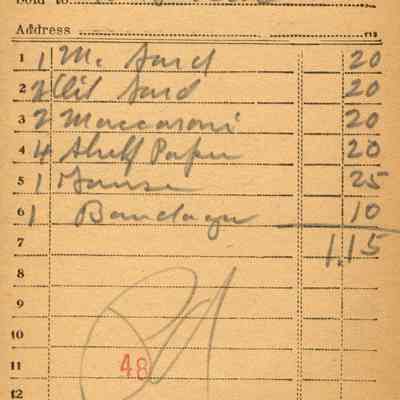 Sold to
Address
1 1 M. Sard 20
2 2 Oil Sard 20
3 2 Maccaroni 20
4 4 Shelf Paper 20
5 1 Gauze 25
6 1 Bandage 10
7 1.15
8
9
10
11 48
12